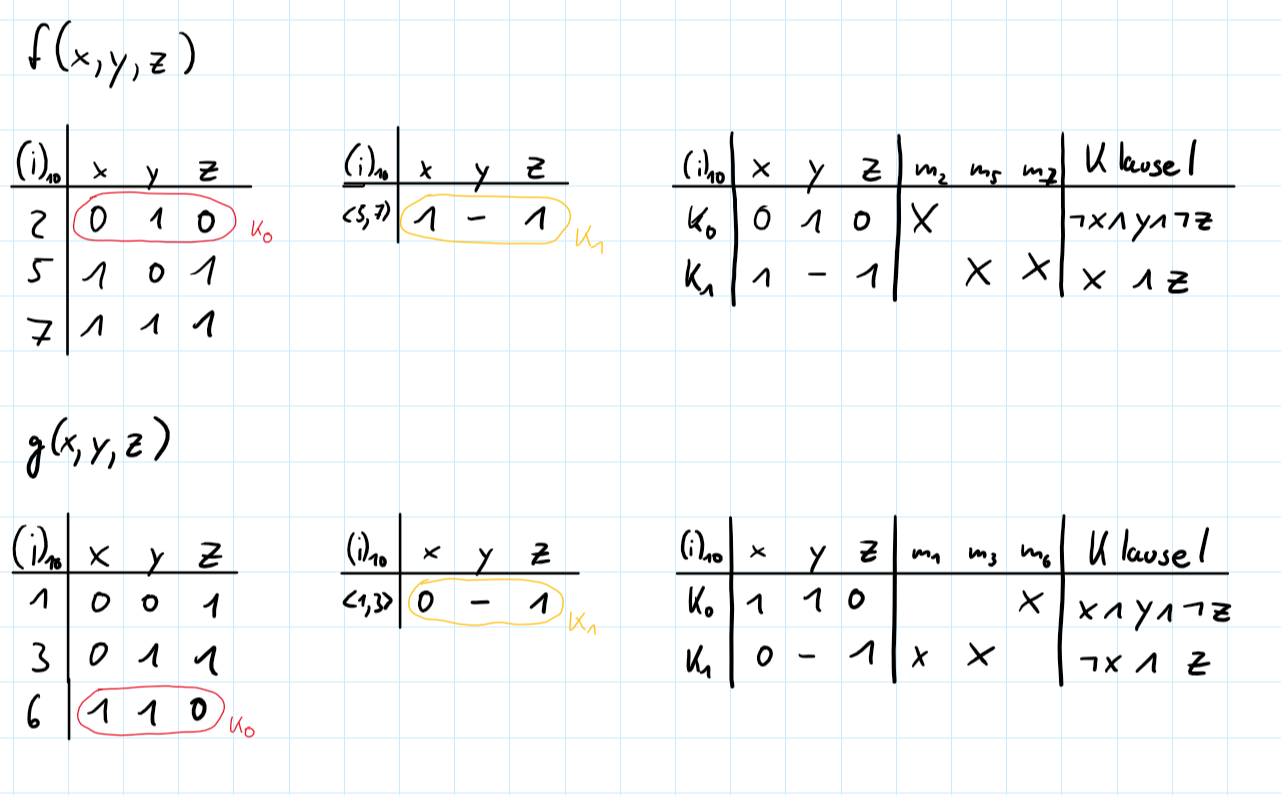 f(x,y,z)
(i)₁₀ x y z
2 0 1 0 K₀
5 1 0 1
7 1 1 1
(i)₁₀ x y z
<5,7> 1 - 1 K₁
(i)₁₀ x y z m₂ m₅ m₇ Klausel
K₀ 0 1 0 X ¬x∧y∧¬z
K₁ 1 - 1 X X x ∧ z
g(x,y,z)
(i)₁₀ x y z
1 0 0 1
3 0 1 1
6 1 1 0 K₀
(i)₁₀ x y z
<1,3> 0 - 1 K₁
(i)₁₀ x y z m₁ m₃ m₆ Klausel
K₀ 1 1 0 X x∧y∧¬z
K₁ 0 - 1 X X ¬x ∧ z